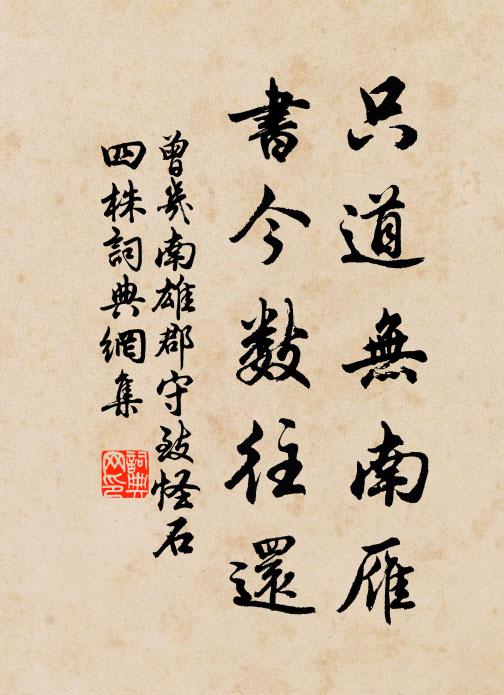 只道無南雁
書今數往還
曾幾南雄郡守致怪石
四株詞典網集
詞典網印